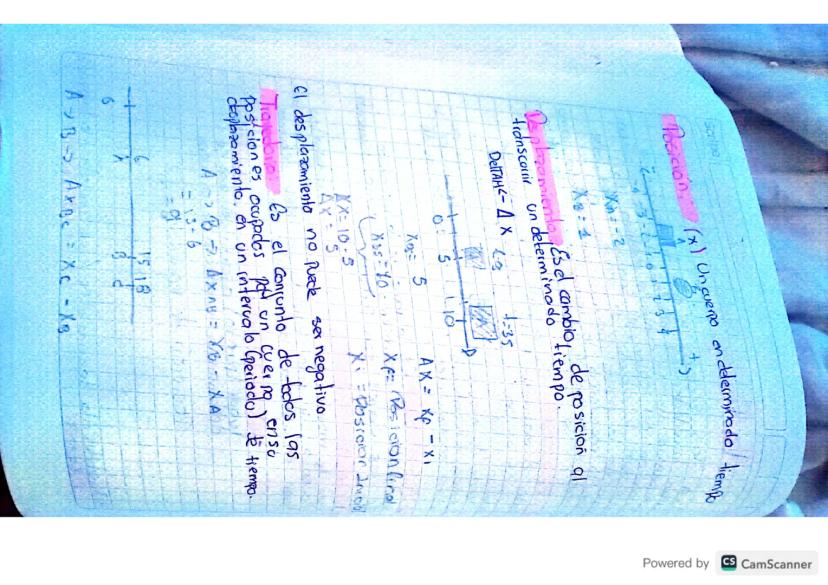 Posición. (x) Un cuerpo en determinado tiempo
- 4 - 3 - 2 - 1 0 1 2 3 4 +
A
XA = -2
XB = 1
Desplazamiento Es el cambio de posición al
transcurrir un determinado tiempo.
Δ X
0 5 10
X0 = 5
ΔX = XF - Xi
XF = Posicion final
Xi = Posicion
ΔX = 10 - 5
ΔX = 5
El desplazamiento no puede ser negativo.
Trayectoria Es el conjunto de todos las
posiciones ocupados por un cuerpo en su
desplazamiento, en un intervalo (periodo) de tiempo.
A → B → ΔXAB = XB - XA
= 15 - 6
= 9
6 15 18
A B C
A → B → ΔXBC = XC - XB
Powered by CS CamScanner